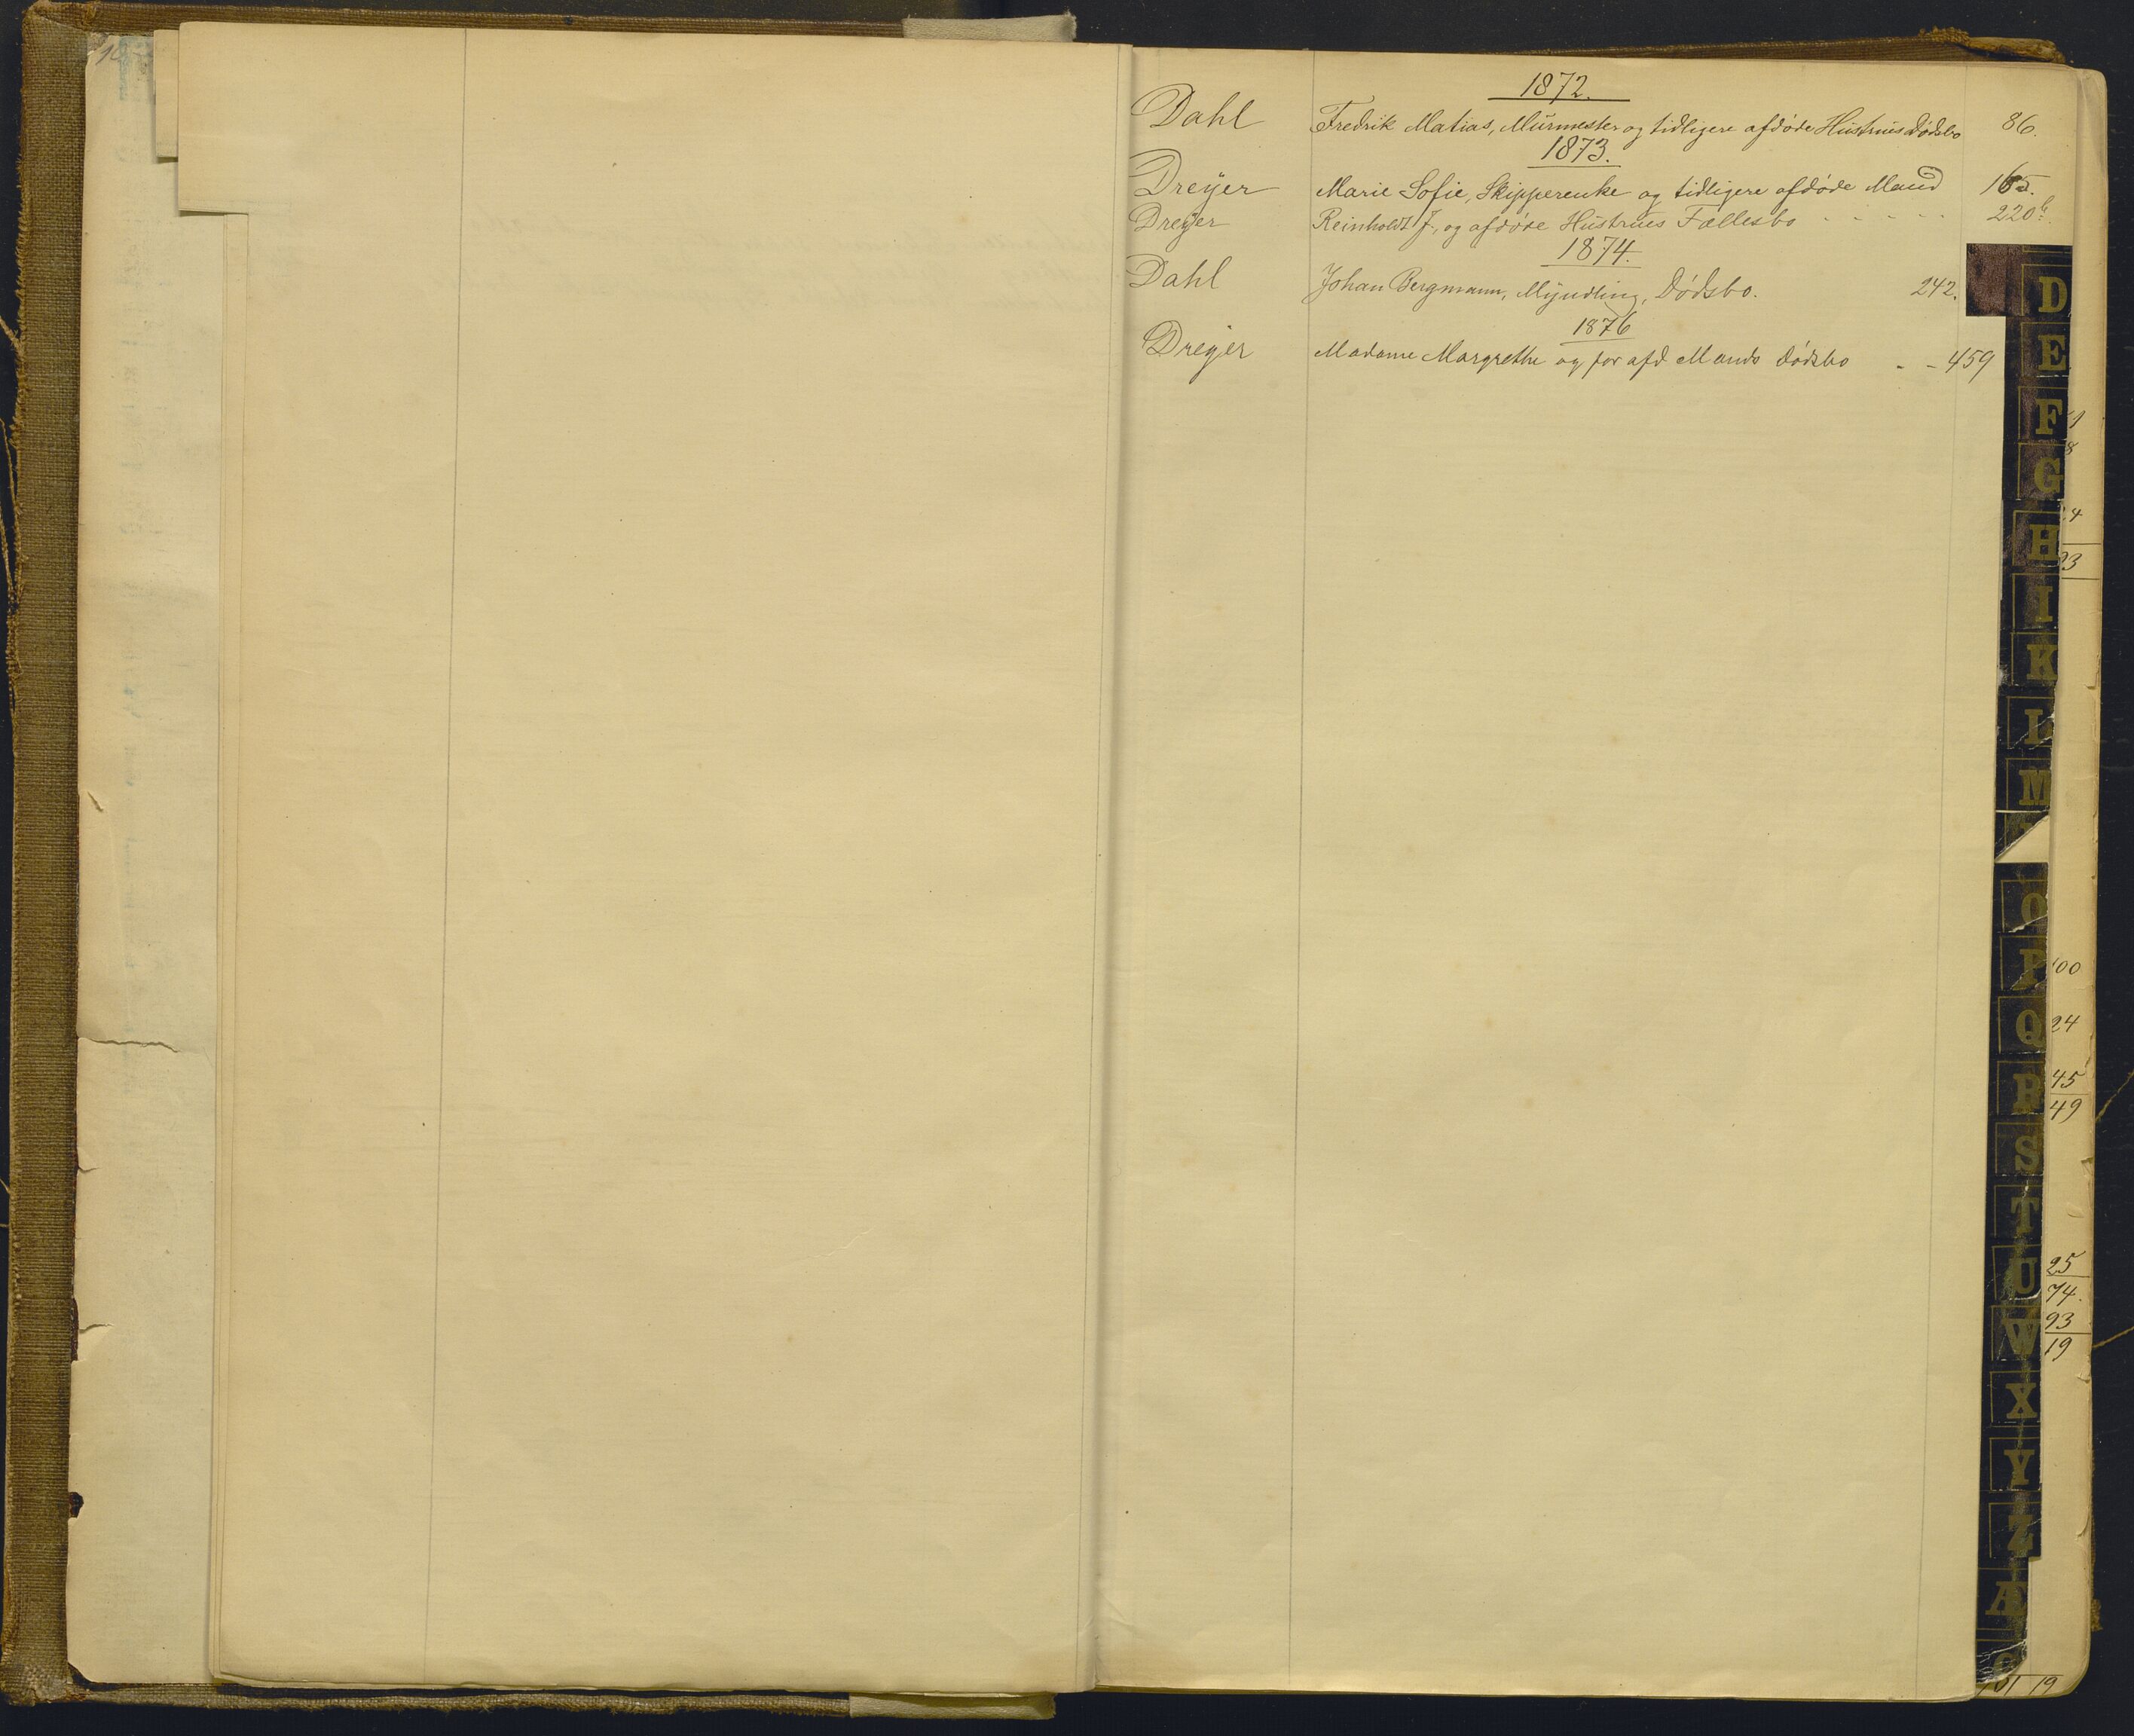 1872.
Dahl Fredrik Matias, Murmester og tidligere afdøde Hustrues Dødsbo 86.
1873.
Dreyer Marie Sofie, Skipperenke og tidligere afdøde Mand 165.
Dreyer Reinholdt J., og afdøde Hustrues Fællesbo - - - - - 220b.
1874.
Dahl Johan Bergmann, Myndling, Dødsbo. 242.
1876
Dreyer Madame Margrethe og før afd Mands dødsbo - - 459
D
E
F
G
H
I
K
L
M
O
P
Q
R
S
T
U
W
X
Y
Z
Æ
24
45
49
25
74.
93
19
19